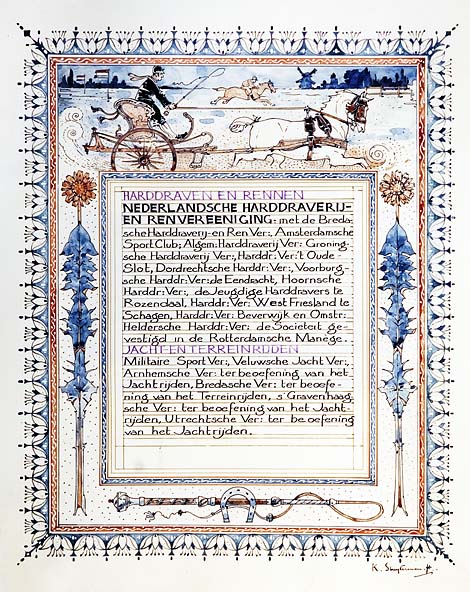 HARDDRAVEN EN RENNEN
NEDERLANDSCHE HARDDRAVERIJ-
EN RENVEREENIGING: met de Breda-
sche Harddraverij-en Ren Ver:, Amsterdamsche
Sport Club; Algem: Harddraverij Ver: Groning-
sche Harddraverij Ver:, Harddr: Ver: 't Oude -
Slot, Dordrechtsche Harddr: Ver:, Voorburg-
sche Harddr: Ver: de Eendacht, Hoornsche
Harddr: Ver:, de Jeugdige Harddravers te
Rozendaal, Harddr: Ver: West Friesland te
Schagen, Harddr: Ver: Beverwijk en Omstr:
Heldersche Harddr: Ver: de Societeit ge-
vestigd in de Rotterdamsche Manége.
JACHT-EN TERREINRIJDEN
Militaire Sport Ver:, Veluwsche Jacht Ver:,
Arnhemsche Ver: ter beoefening van het
Jachtrijden, Bredasche Ver: ter beoefe-
ning van het Terreinrijden, s' Gravenhaag-
sche Ver: ter beoefening van het Jacht-
rijden, Utrechtsche Ver: ter beoefening
van het Jachtrijden.